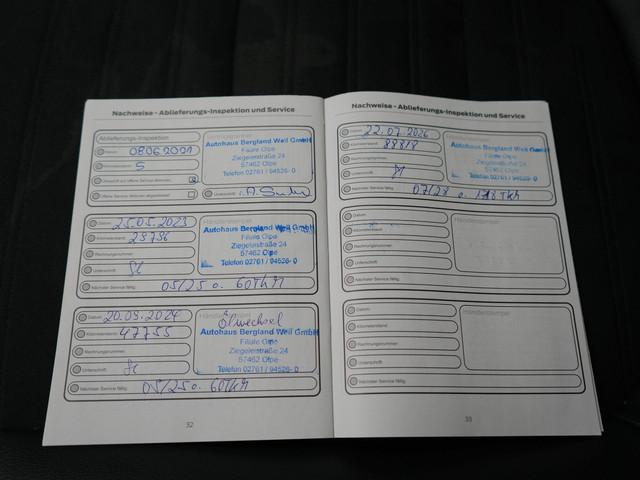 Nachweise - Ablieferungs-Inspektion und Service
Ablieferungs-Inspektion
Datum 08062021
5
Unterschrift i.A.
Autohaus Bergland Weil GmbH
Filiale Olpe
Ziegeleistraße 24
57462 Olpe
Telefon 02761 / 94526- 0
Datum 25.05.2023
Kilometerstand 29796
Rechnungsnummer
Unterschrift
Nächster Service fällig 05/25 o. 60TKM
Autohaus Bergland Weil GmbH
Filiale Olpe
Ziegeleistraße 24
57462 Olpe
Telefon 02761 / 94526- 0
Datum 20.09.2024
Kilometerstand 47755
Rechnungsnummer
Unterschrift
Nächster Service fällig 05/25 o. 60TKM
Ölwechsel
Autohaus Bergland Weil GmbH
Filiale Olpe
Ziegeleistraße 24
57462 Olpe
Telefon 02761 / 94526- 0
32
Nachweise - Ablieferungs-Inspektion und Service
Datum 22.07.2026
Kilometerstand 88818
Rechnungsnummer
Unterschrift
Nächster Service fällig 07/28 o. 118TKM
Autohaus Bergland Weil GmbH
Filiale Olpe
Ziegeleistraße 24
57462 Olpe
Telefon 02761 / 94526- 0
Datum
Kilometerstand
Rechnungsnummer
Unterschrift
Nächster Service fällig
Händlerstempel
Datum
Kilometerstand
Rechnungsnummer
Unterschrift
Nächster Service fällig
Händlerstempel
33